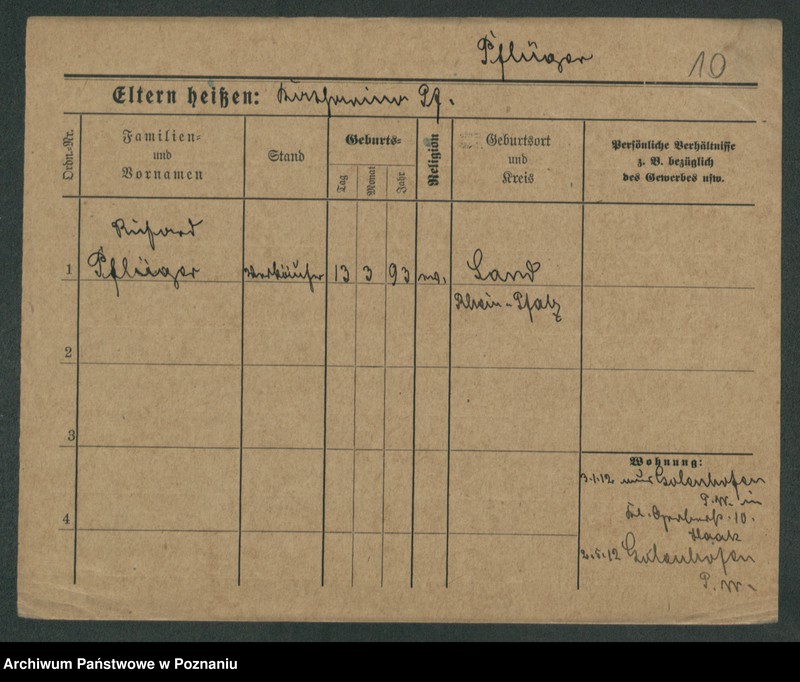 Pflüger 10
Eltern heißen: Katharina Pf.
Ordn.-Nr.
Familien=
und
Vornamen
Stand
Geburts=
Tag
Monat
Jahr
Religion
Geburtsort
und
Kreis
Persönliche Verhältnisse
z. B. bezüglich
des Gewerbes usw.
Richard
1 Pflüger Verkäufer 13 3 93 ev. Land
Rhein-Pfalz
2
3
Wohnung:
3.1.12 aus Golenhofen
P.W. in
10.
Haak
4
2.5.12 Golenhofen
P.W.
Archiwum Państwowe w Poznaniu